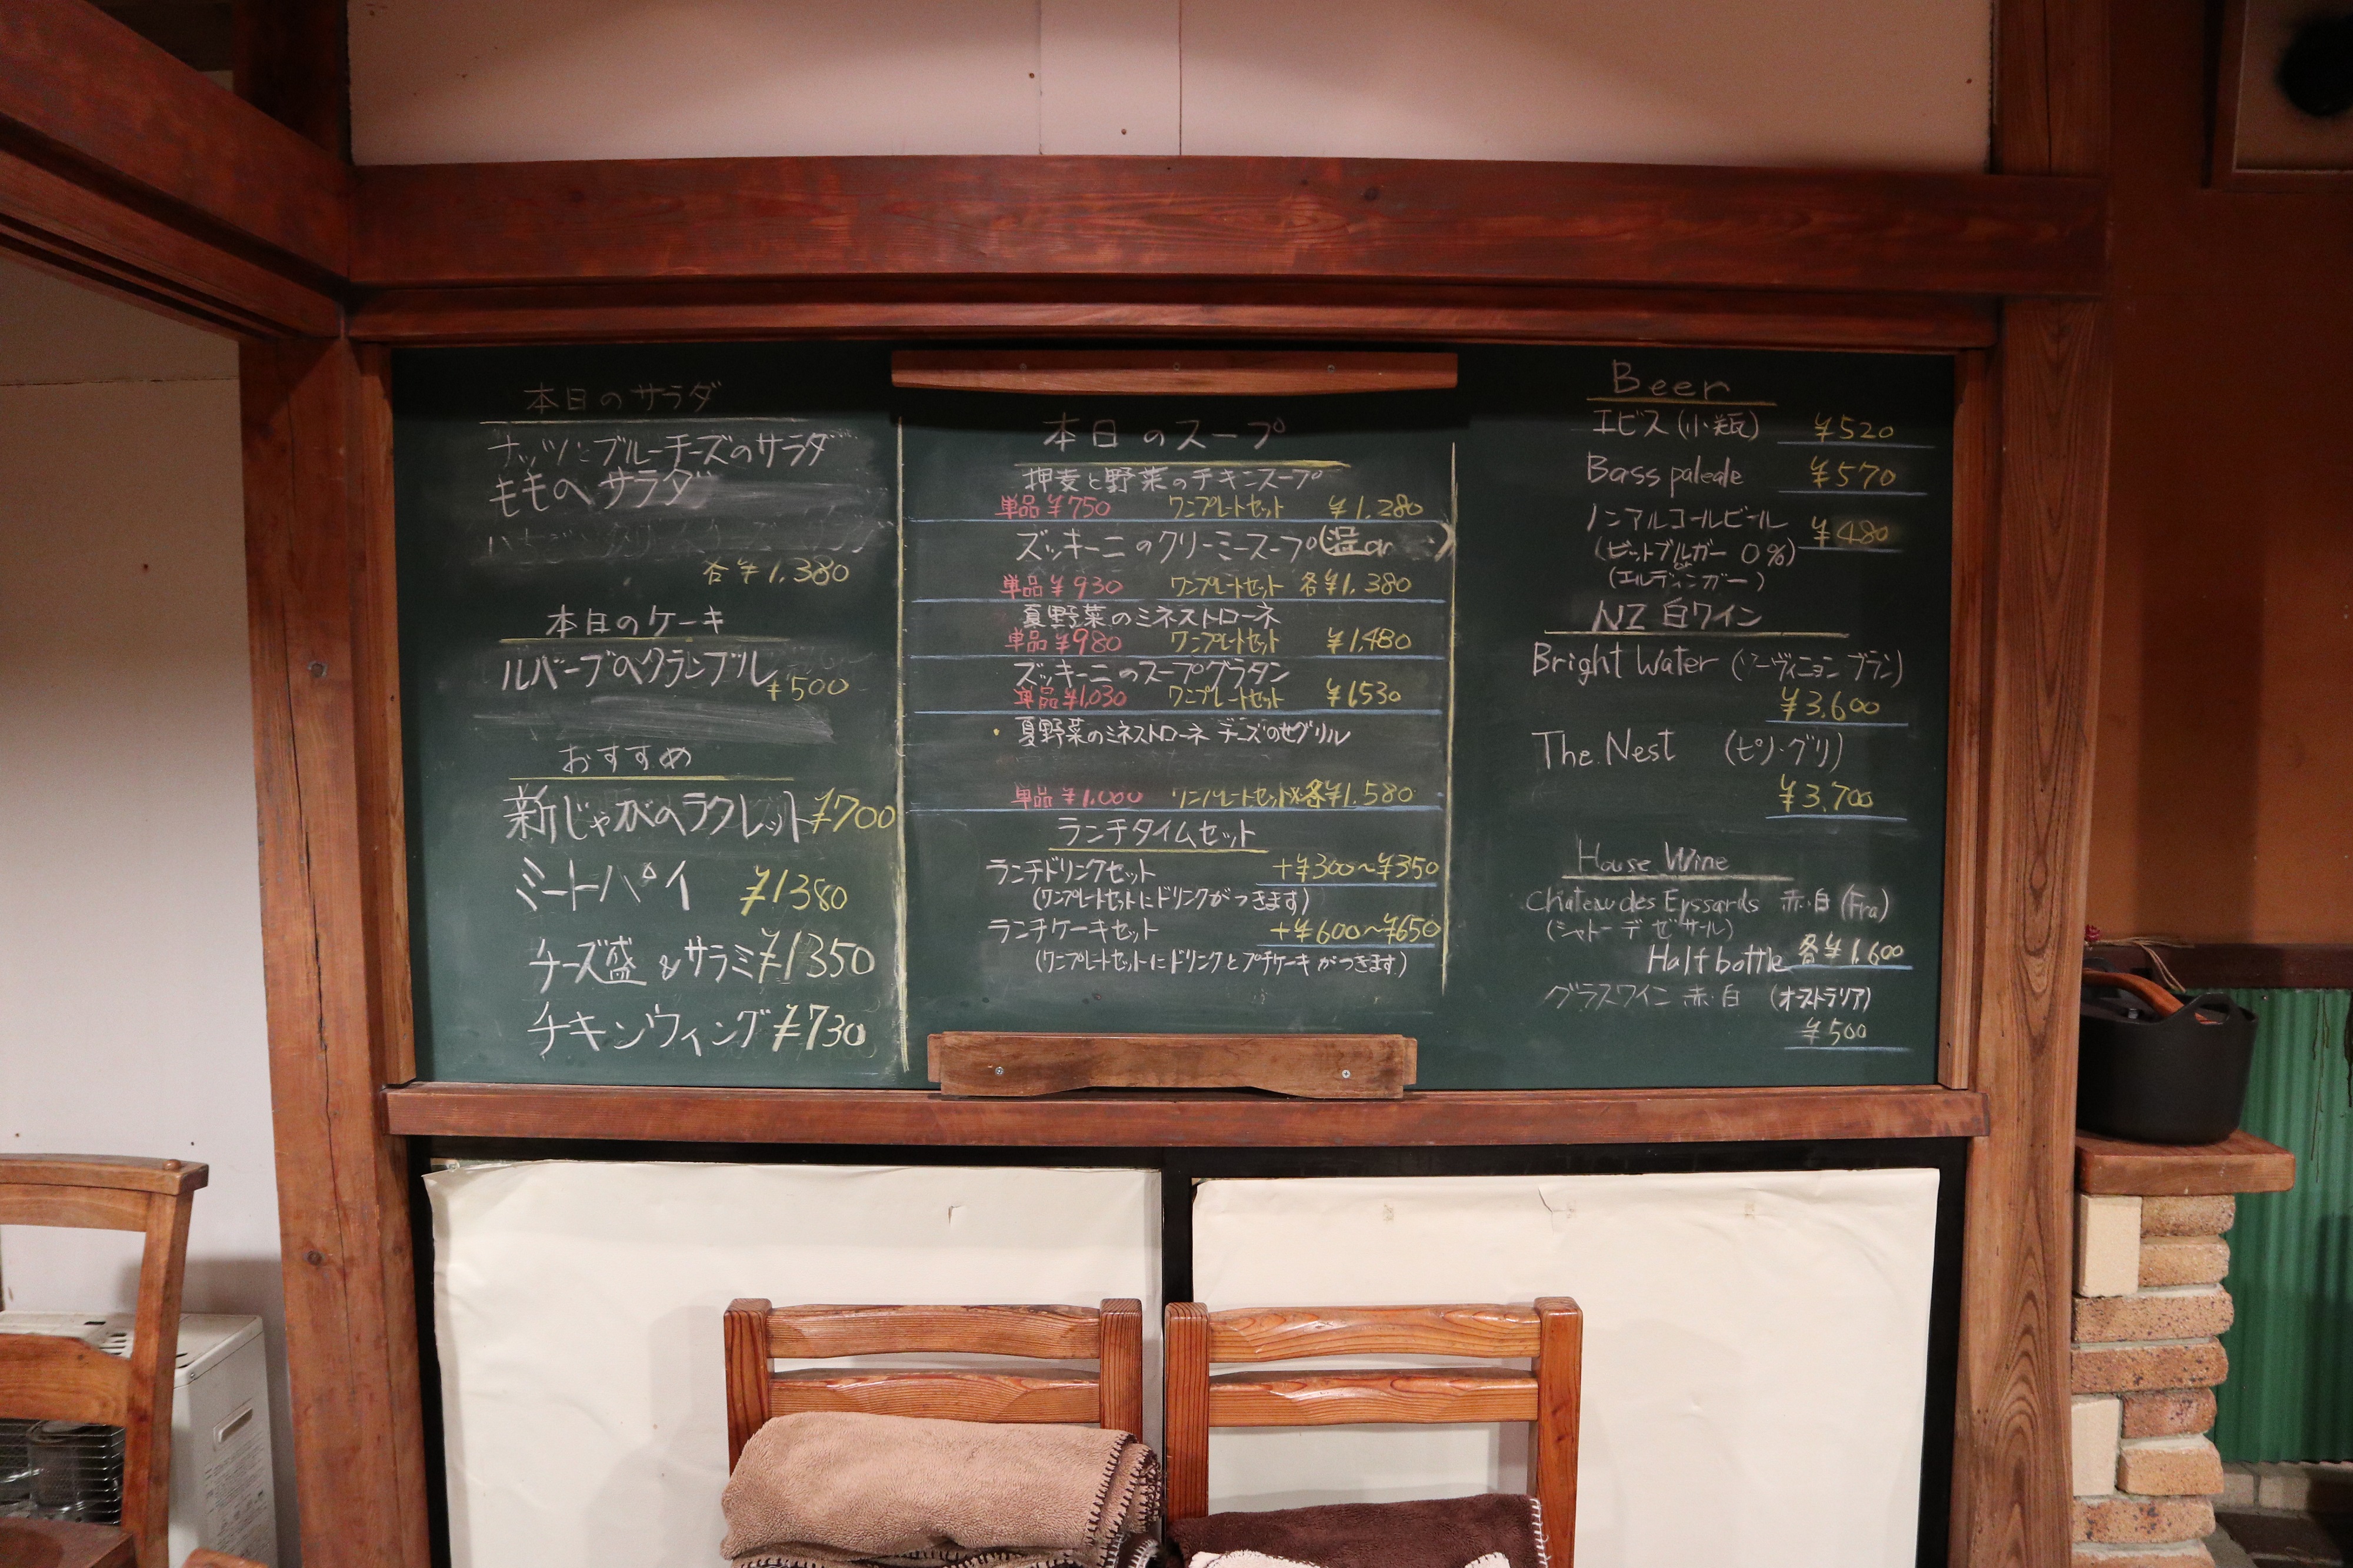 本日のサラダ
ナッツとブルーチーズのサラダ
ももの サラダ
各 ¥1.380
本日のケーキ
ルバーブのクランブル ¥500
おすすめ
新じゃがのラクレット ¥700
ミートパイ ¥1380
チーズ盛 & サラミ ¥1350
チキンウィング ¥730
本日のスープ
押麦と野菜のチキンスープ
単品 ¥750 ワンプレートセット ¥1.280
ズッキーニのクリーミースープ(温or )
単品 ¥930 ワンプレートセット 各¥1.380
夏野菜のミネストローネ
単品 ¥980 ワンプレートセット ¥1.480
ズッキーニのスープグラタン
単品 ¥1.030 ワンプレートセット ¥1530
夏野菜のミネストローネ チーズのせグリル
単品 ¥1.000 ワンプレートセット 各¥1.580
ランチタイムセット
ランチドリンクセット +¥300~¥350
(ワンプレートセットにドリンクがつきます)
ランチケーキセット +¥600~¥650
(ワンプレートセットにドリンクとプチケーキがつきます)
Beer
エビス (小瓶) ¥520
Bass paleale ¥570
ノンアルコールビール ¥480
(ビットブルガー 0%)
or
(エルディンガー)
NZ 白ワイン
Bright Water (ソーヴィニョン ブラン)
¥3.600
The Nest (ピノ・グリ)
¥3.700
House Wine
Chateau des Eyssards 赤・白 (Fra)
(シャトー デ ゼサール)
Half bottle 各¥1.600
グラスワイン 赤・白 (オーストラリア)
¥500